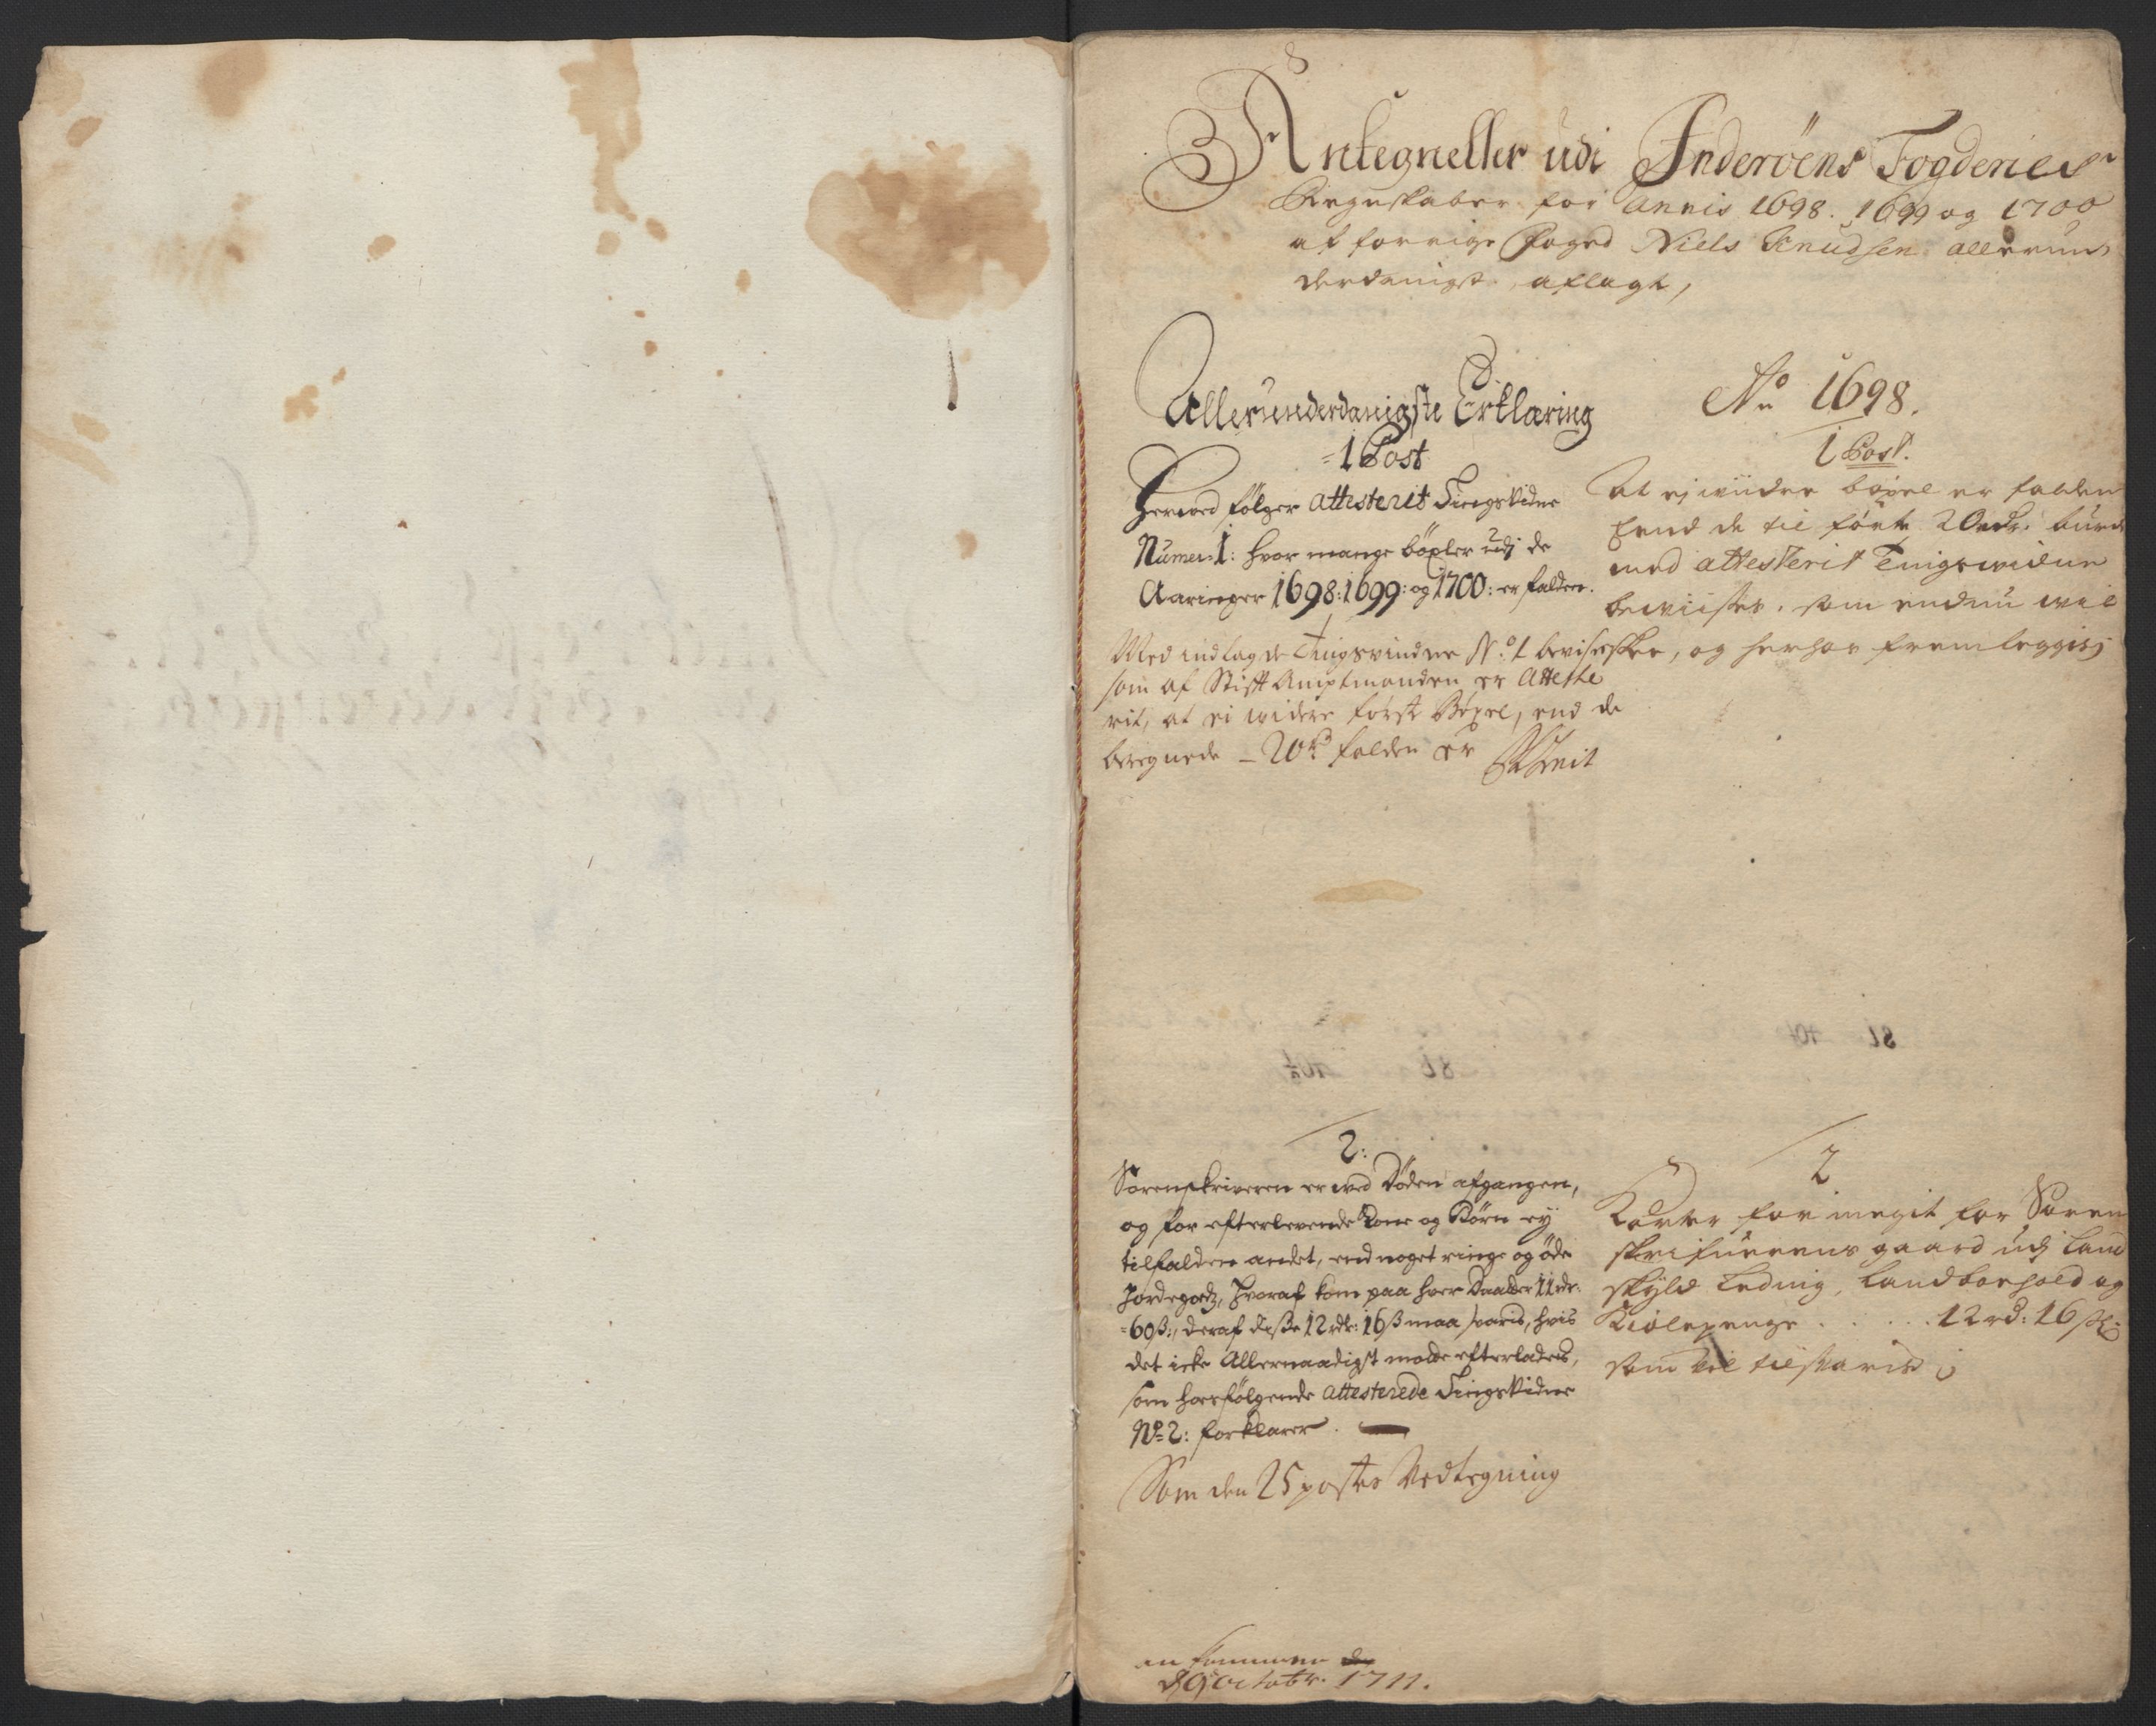 Antegnelser udi Inderöens Fogderies
Regnskaber for Annis 1698. 1699 og 1700
af forrige foged Niels Knudsen allerun
derdanigst aflagt,
Allerunderdanigste Erklæring
1 Post
Hermed følger attesterit Tingsvidne
Numer: 1: hvor mange böxler udj de
Aaringer 1698: 1699: og 1700: er falden.
Med indlagde Tingsvindne No. 1 bevisis
som af Stift Amptmanden er Atteste
rit, at ei videre första Böxel, end de
beregnede - 20 falden er
Ao 1698.
1 Post.
At ej viider böxel er falden
end de til förte 20 rdr. burde
med attesterit Tingsvidne
beviises. som endnu vil
skee, og herhos fremleggis;
2:
Sorenskriveren er ved Döden afgangen,
og for efterlevende Kone og Börn ey
tilfalden andet, end noget ringe og öde
Jordegodz, hvoraf kom paa hver Daler 11 rdr:
60 ß:, deraf disse 12 rdr: 16 ß maa svaris, hvis
det icke Allernaadigst motte efterlades,
som herfølgende attesterede Tingsvidne
No 2: forklarer.
Som den 25 postes Vedtegning
2
Korter for megit for Soren
skrifuerens gaard udj Land
skyld Leding, Landboehold og
12 rd: 16 ß:
som vil tilsvaris
an kommen d
d 9 Octobr. 1711.